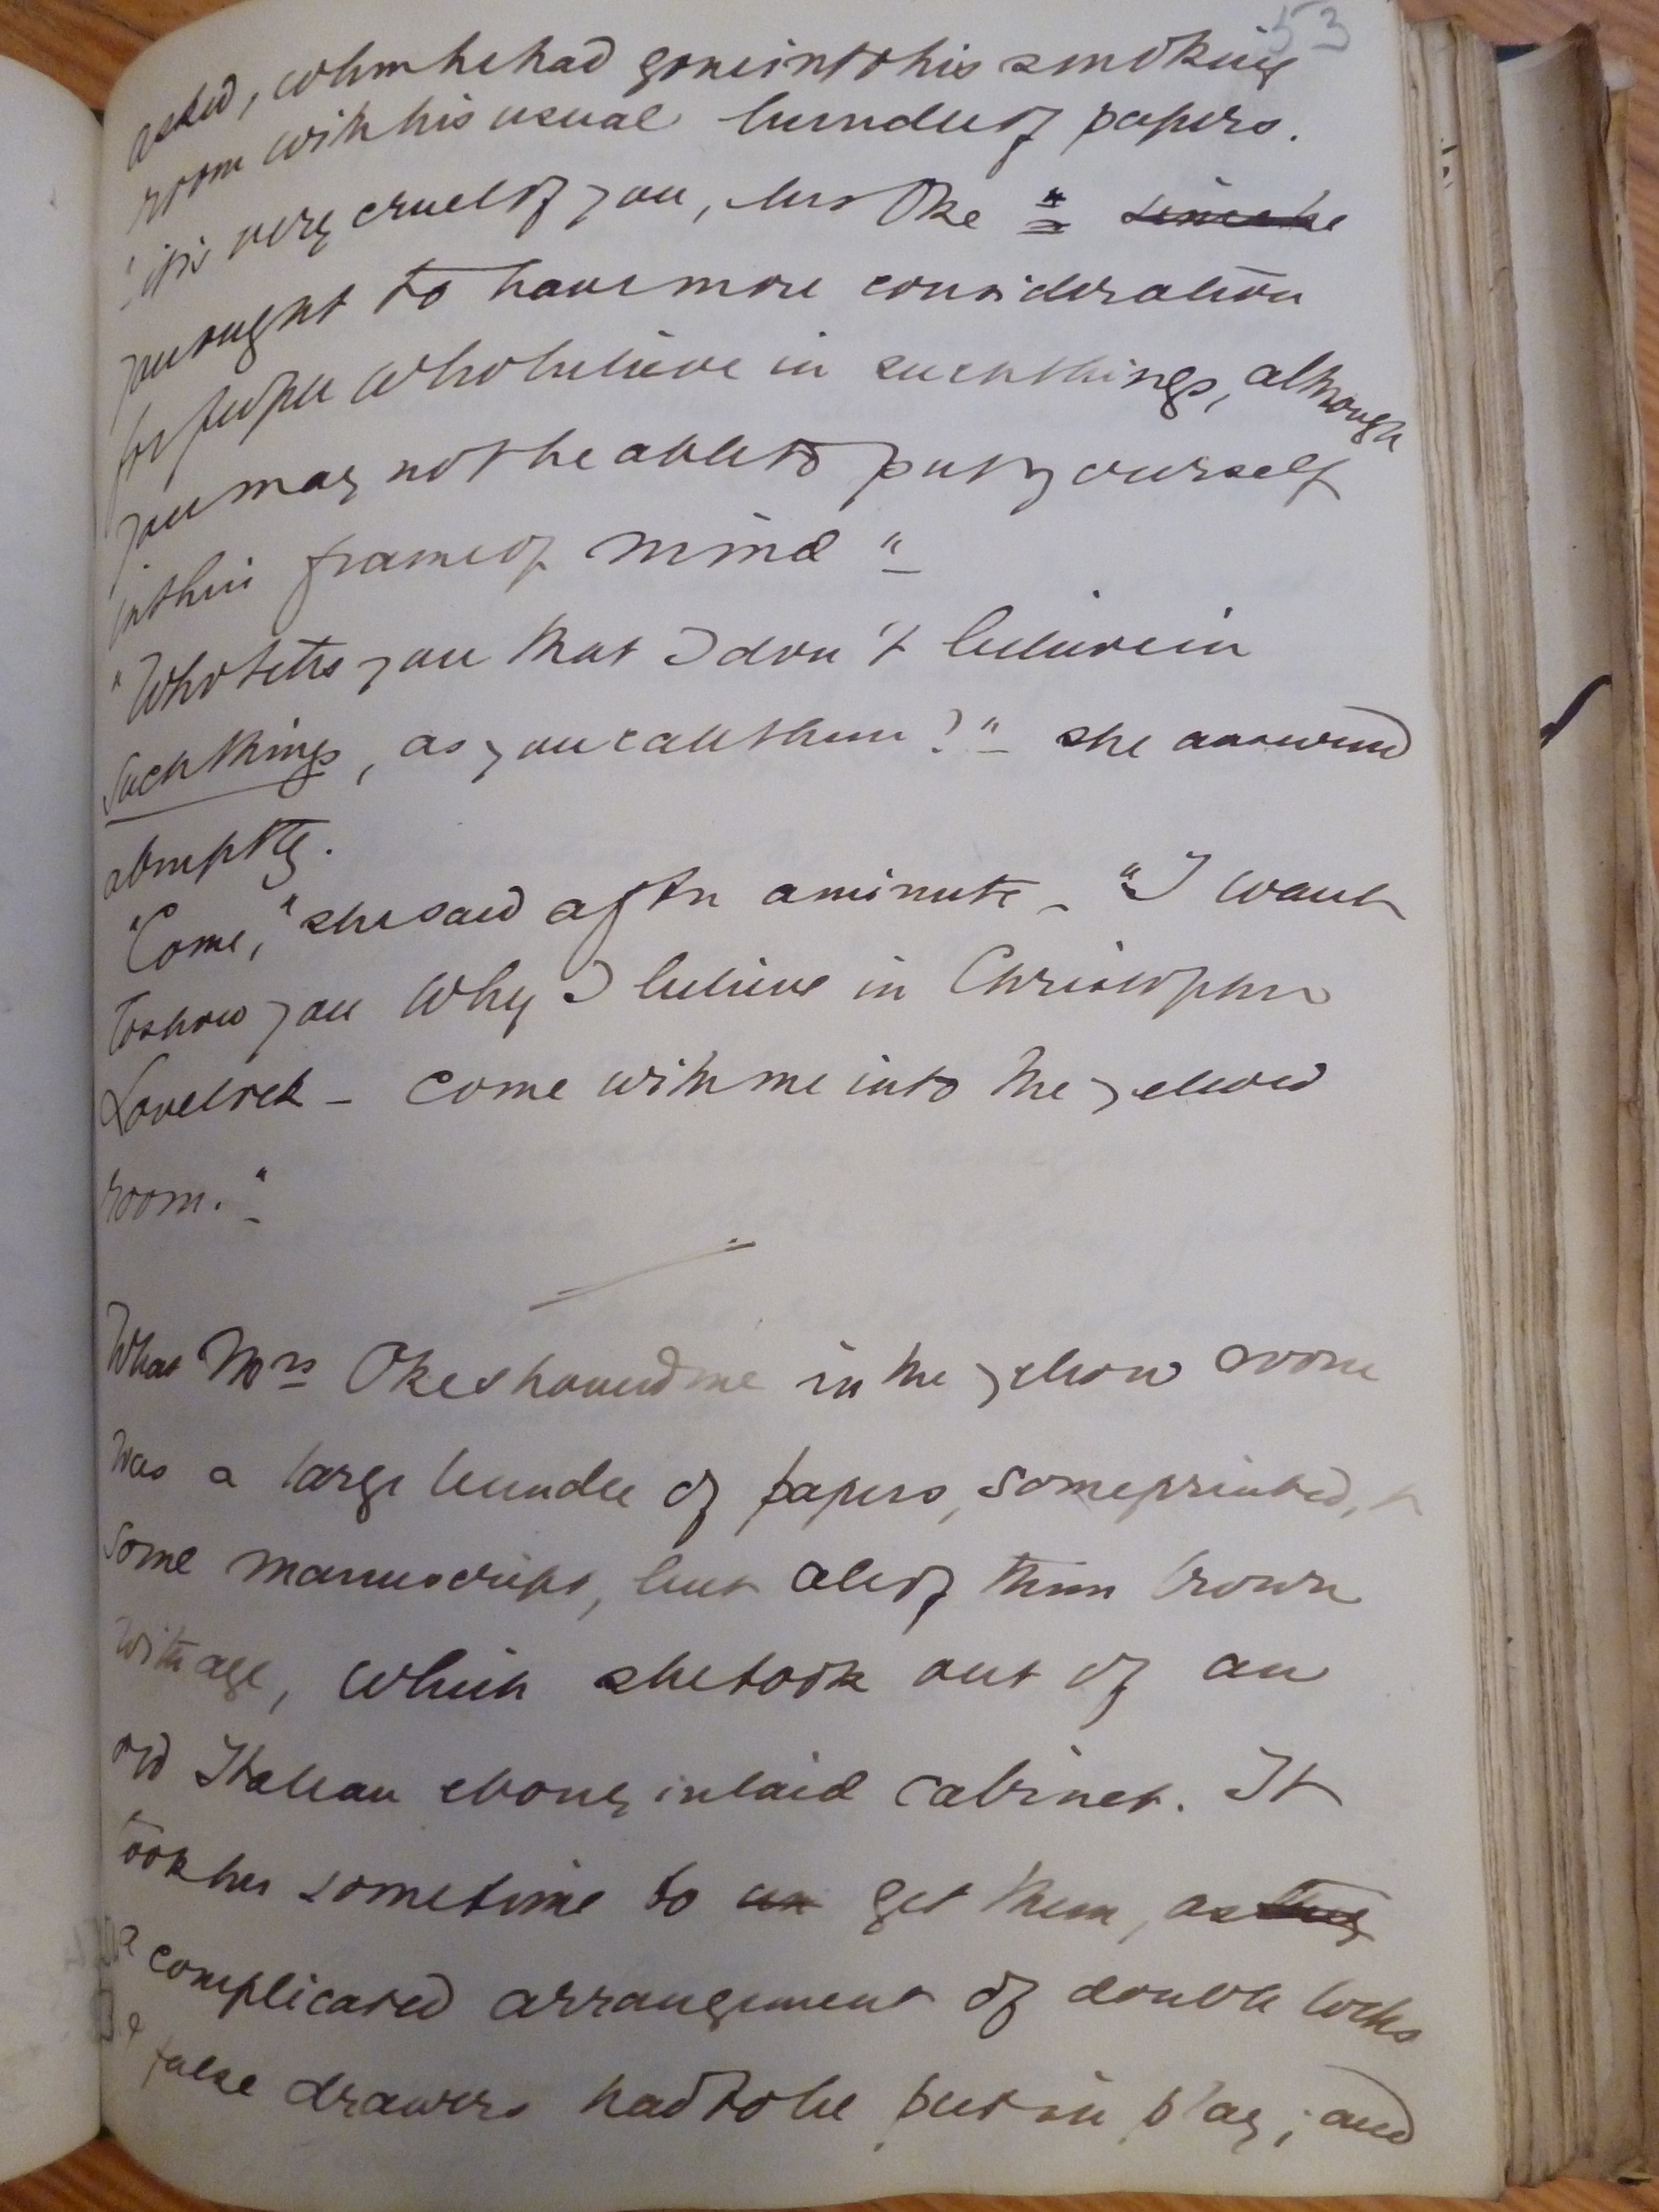 53
asked, when he had gone into his smoking
room with his usual bundle of papers.
"it is very cruel of you, Mrs Oke = since he
you ought to have more consideration
for people who believe in such things, although
you may not be able to put yourself
in their frame of mind"
"Who tells you that I don't believe in
such things, as you call them?" she answered
abruptly.
"Come," she said after a minute - "I want
to show you why I believe in Christopher
Lovelock - come with me into the yellow
room."
What Mrs Oke showed me in the yellow room
was a large bundle of papers, some printed, &
some manuscript, but all of them brown
with age, which she took out of an
old Italian ebony inlaid cabinet. It
took her some time to un get them, as they
a complicated arrangement of double locks
& false drawers had to be put in play; and